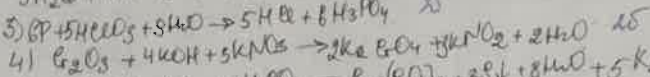 3) 6P + 5HClO3 + 9H2O → 5HCl + 6H3PO4
4) Cr2O3 + 4KOH + 3KNO3 → 2K2CrO4 + 3KNO2 + 2H2O 2б
+ 8H2O + 5K